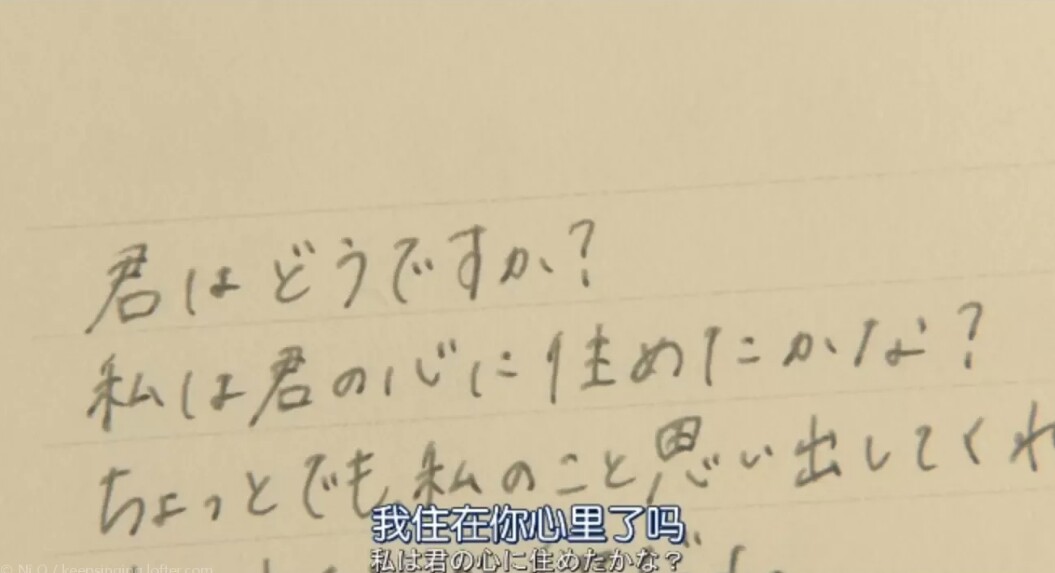 君はどうですか?
私は君の心に住めたかな?
ちょっとでも私のこと思い出してくれ
我住在你心里了吗
私は君の心に住めたかな?
© Ni.O / keepsinging.lofter.com